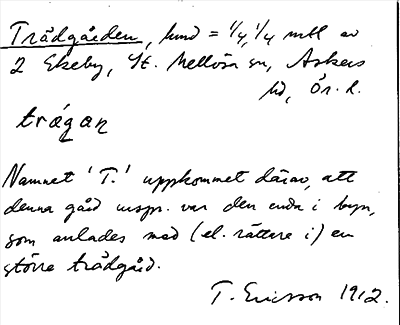 Trädgården, hmd = 1/4, 1/4 mtl av
2 Ekeby, St. Mellösa sn, Askers
hd, Ör. l.
trágan
Namnet 'T.' uppkommet därav, att
denna gård urspr. var den enda i byn,
som anlades med (el. rättare i) en
större trädgård.
T. Ericsson 1912.